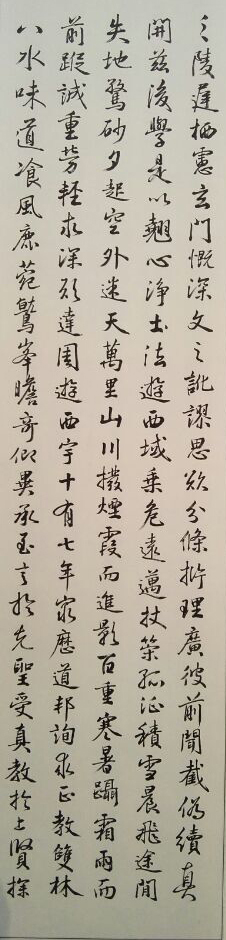 之陵遲栖慮玄門慨深文之訛謬思欲分條析理廣彼前聞截偽續真
開茲後學是以翹心淨土法遊西域乘危遠邁杖策孤征積雪晨飛途間
失地驚砂夕起空外迷天萬里山川撥煙霞而進影百重寒暑躡霜雨而
前蹤誠重勞輕求深願達周遊西宇十有七年窮歷道邦詢求正教雙林
八水味道飡風鹿菀鷲峯瞻奇仰異承至言於先聖受真教於上賢探